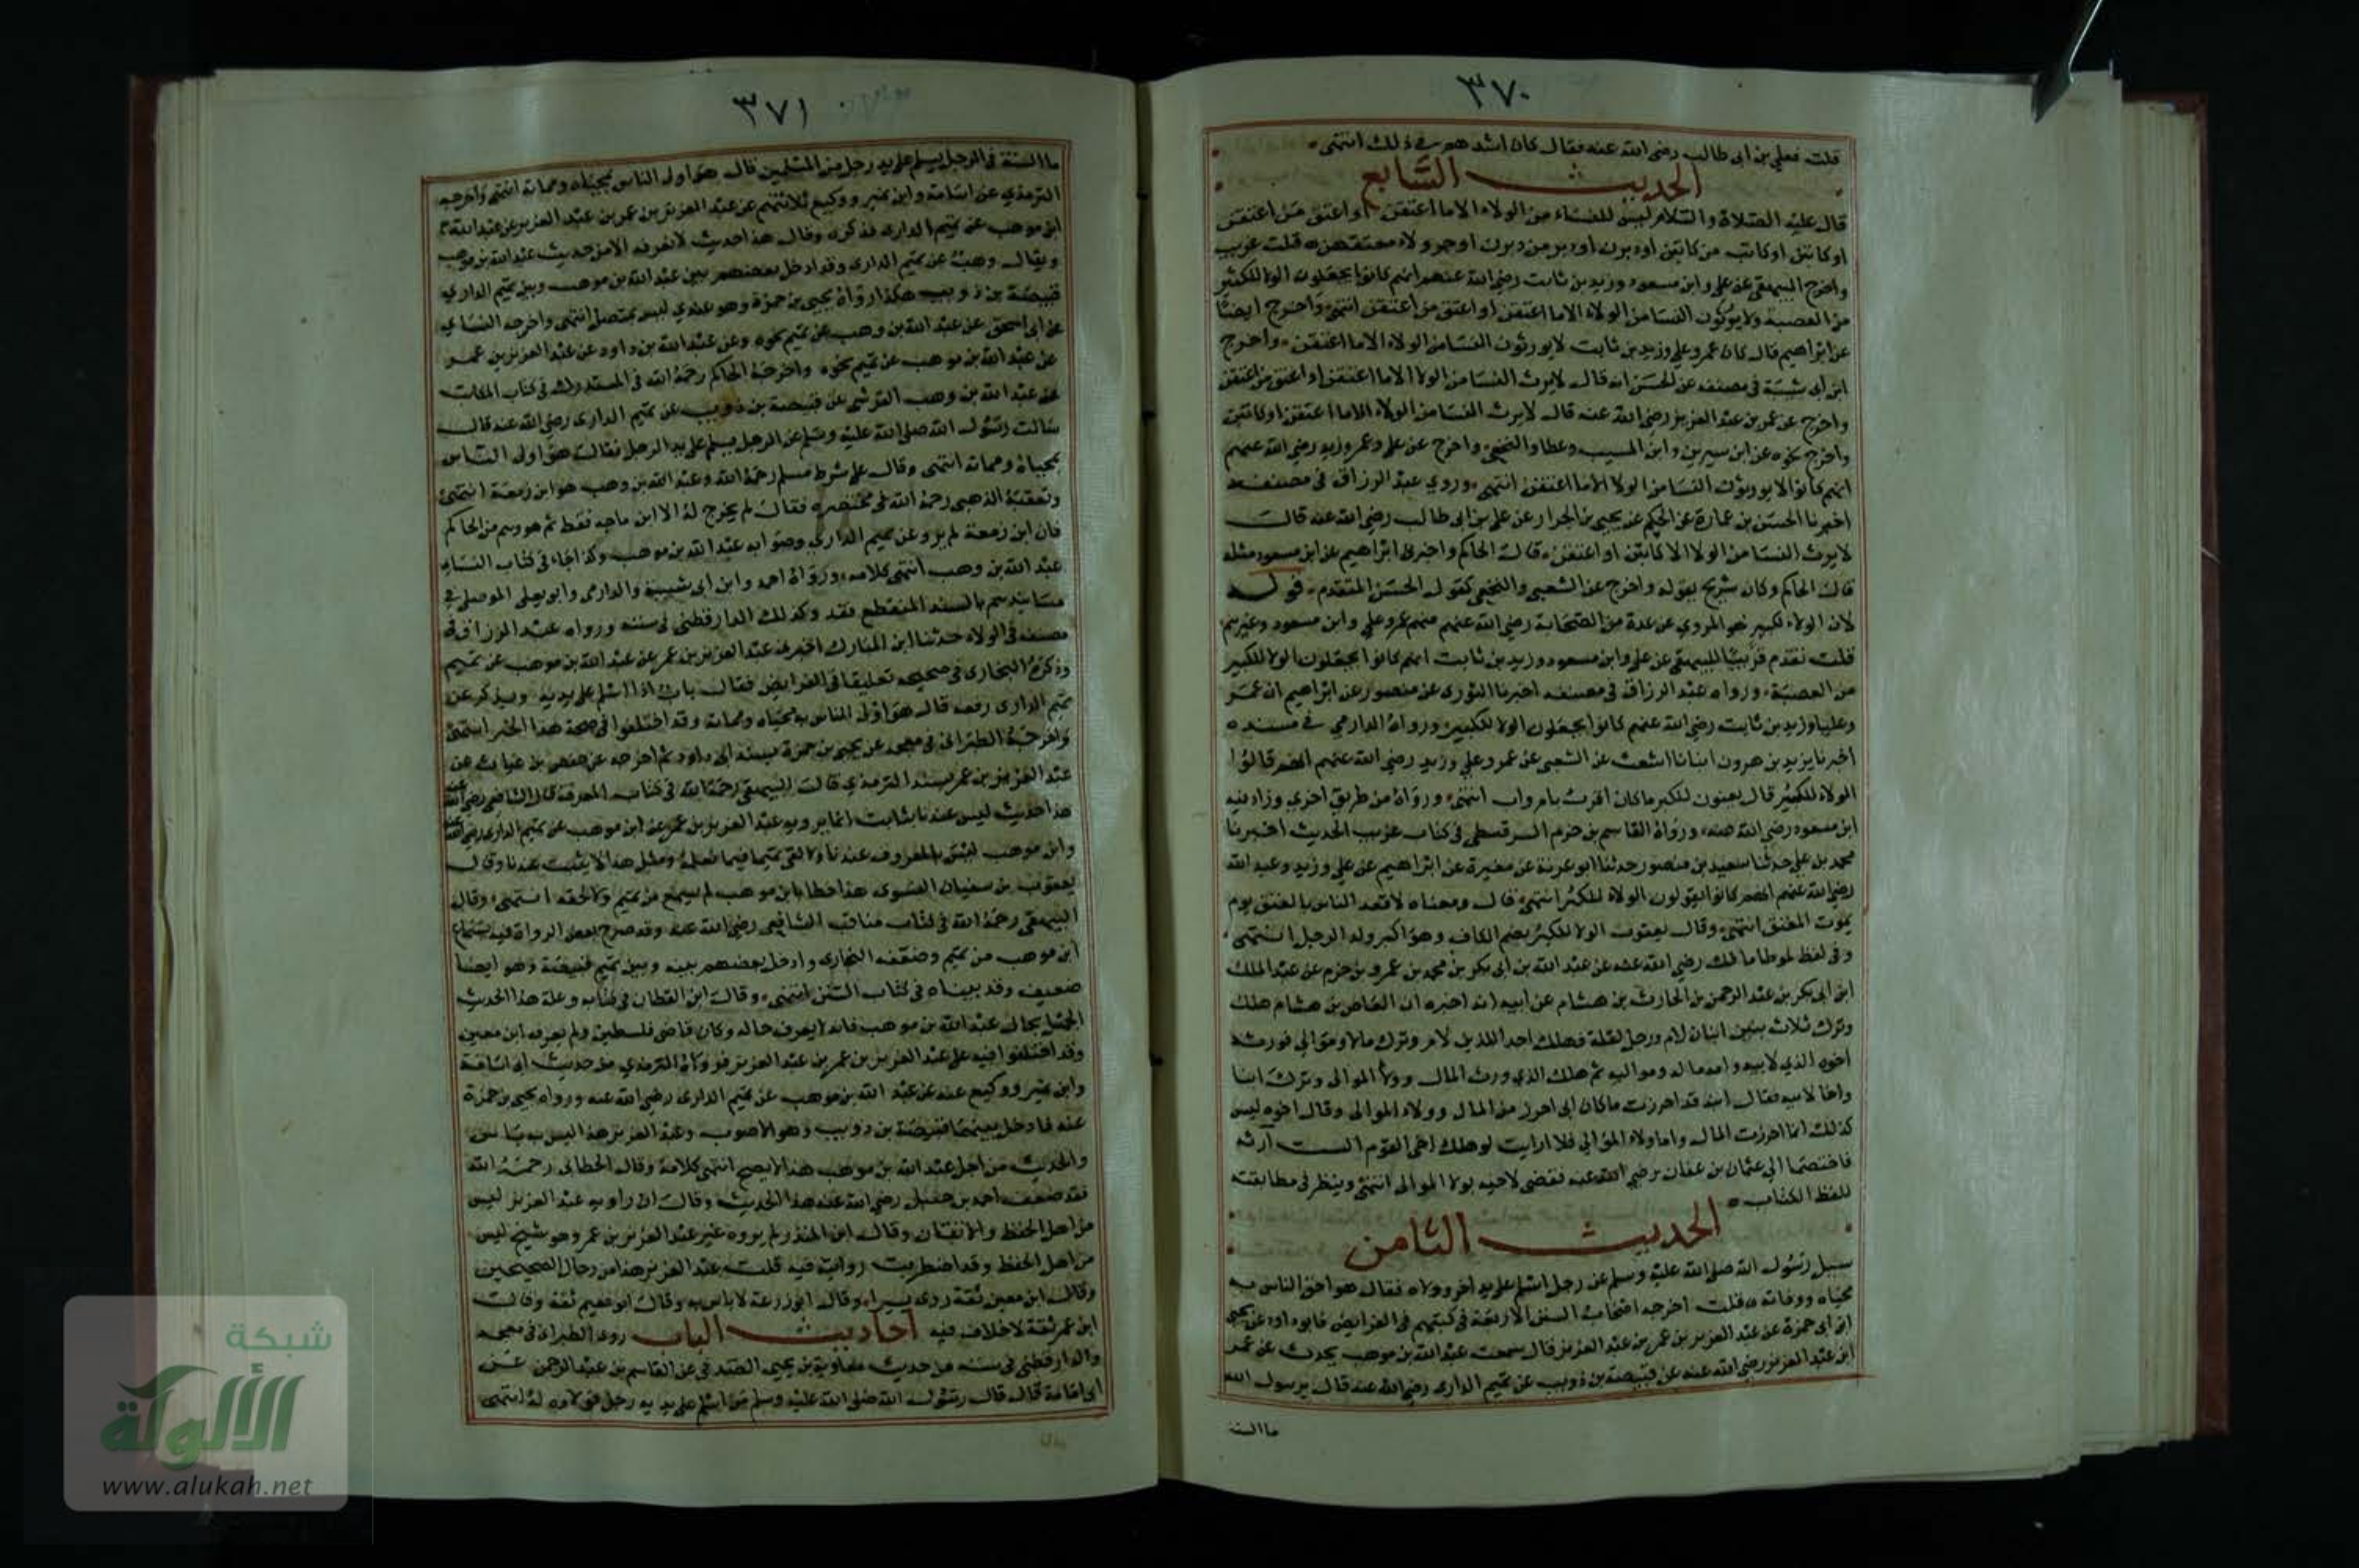 ٣٧٠
قلت فعلي بن ابى طالب رضى الله عنه فقال كان اشدهم في ذلك انتهى
الحديث السابع
قال عليه الصلاة والسلام ليس للنساء من الولاء الا ما اعتقن او اعتق من اعتقن
او كاتبن او كاتب من كاتبن او دبرن او دبر من دبرن او جر ولاء معتقهن قلت غريب
واخرج البيهقى عن على وابن مسعود وزيد بن ثابت رضى الله عنهم انهم كانوا يجعلون الولا للكبير
من العصبة ولا يورثون النسا من الولاء الا ما اعتقن او اعتق من اعتقن انتهى واخرج ايضا
عن ابراهيم قال كان عمر وعلى وزيد بن ثابت لا يورثون النسا من الولاء الا ما اعتقن واخرج
ابن ابى شيبة في مصنفه عن الحسن انه قال لا يرث النسا من الولا الا ما اعتقن او اعتق من اعتقن
واخرج عن عمر بن عبد العزيز رضى الله عنه قال لا يرث النسا من الولاء الا ما اعتقن او كاتبن
واخرج نحوه عن ابن سيرين وابن المسيب وعطا والنخعى واخرج عن على وعمر وزيد رضى الله عنهم
انهم كانوا لا يورثون النسا من الولا الا ما اعتقن انتهى وروي عبد الرزاق فى مصنفه
اخبرنا الحسن بن عمارة عن الحكم عن يحيى بن الجزار عن على بن ابى طالب رضى الله عنه قال
لا يرث النسا من الولا الا ما كاتبن او اعتقن قال الحاكم واخبرنى ابراهيم عن ابن مسعود مثله
قال الحاكم وكان شريح يقوله واخرج عن الشعبى والنخعى كقول الحسن المتقدم قوله
لان الولاء لكبير هو المروي عن عدة من الصحابة رضى الله عنهم منهم عمر وعلى وابن مسعود وغيرهم
قلت تقدم قريبا للبيهقى عن على وابن مسعود وزيد بن ثابت انهم كانوا يجعلون الولا للكبير
من العصبة ورواه عبد الرزاق فى مصنفه اخبرنا الثورى عن منصور عن ابراهيم ان عمر
وعليا وزيد بن ثابت رضى الله عنهم كانوا يجعلون الولا للكبير ورواه الدارمي في مسنده
اخبرنا يزيد بن هرون انبانا اشعث عن الشعبى عن عمر وعلى وزيد رضى الله عنهم انهم قالوا
الولاء للكبير قال يعنون للكبر ما كان اقرب باب وام انتهى ورواه من طريق اخري وزاد فيه
ابن مسعود رضى الله عنه ورواه القاسم بن حزم السرقسطى فى كتاب غريب الحديث اخبرنا
محمد بن على حدثنا سعيد بن منصور حدثنا ابو عوانة عن مغيرة عن ابراهيم عن على وزيد وعبد الله
رضى الله عنهم انهم كانوا يقولون الولاء للكبر انتهى قال ومعناه لاقعد الناس بالمعتق يوم
يموت المعتق انتهى وقال يعقوب الولا للكبر بضم الكاف وهو اكبر ولد الرجل انتهى
وفى لفظ لموطا مالك رضى الله عنه عن عبد الله بن ابى بكر بن محمد بن عمرو بن حزم عن عبد الملك
ابن ابى بكر بن عبد الرحمن بن الحارث بن هشام عن ابيه انه اخبره ان العاص بن هشام هلك
وترك ثلاث بنين اثنان لام ورجل لعلة فهلك احد اللذين لام وترك مالا وموالى فورثه
اخوه الذي لابيه وامه ماله ومواليه ثم هلك الذي ورث المال وولاء الموالى وترك ابنا
واخا لابيه فقال ابنه قد احرزت ما كان ابى احرز من المال وولاء الموالى وقال اخوه ليس
كذلك انما احرزت المال واما ولاء الموالي فلا ارايت لو هلك اخى اليوم الست ارثه
فاختصما الى عثمان بن عفان رضى الله عنه فقضى لاخيه بولا الموالى انتهى وينظر فى مطابقته
للفظ الكتاب
الحديث الثامن
سيل رسول الله صلى الله عليه وسلم عن رجل اسلم على يد اخر ووالاه فقال هو احق الناس به
محياه ومماته قلت اخرجه اصحاب السنن الاربعة فى كتبهم فى الفرايض فابو داود عن يحيى
ابن حمزة عن عبد العزيز بن عمر بن عبد العزيز قال سمعت عبد الله بن موهب يحدث عن عمر
ابن عبد العزيز رضى الله عنه عن قبيصة بن ذويب عن تميم الدارى رضى الله عنه قال يرسول الله
ما السنة
٣٧١
ما السنة فى الرجل يسلم على يد رجل من المسلمين قال هو اولى الناس بمحياه ومماته انتهى واخرجه
الترمذي عن ابى اسامة وابن نمير ووكيع ثلاثتهم عن عبد العزيز بن عمر بن عبد العزيز عن عبد الله
ابن موهب عن تميم الدارى فذكره وقال هذا حديث لا نعرفه الا من حديث عبد الله بن موهب
ويقال وهب عن تميم الدارى وقد ادخل بعضهم بين عبد الله بن موهب وبين تميم الدارى
قبيصة بن ذويب هكذا رواه يحيى بن حمزة وهو عندي ليس بمتصل انتهى واخرجه النساي
عن ابى اسحق عن عبد الله بن وهب عن تميم نحوه وعن عبد الله بن داود عن عبد العزيز بن عمر
عن عبد الله بن موهب عن تميم نحوه واخرجه الحاكم رحمه الله فى المستدرك فى كتاب المكاتب
عن عبد الله بن وهب القرشى عن قبيصة بن ذويب عن تميم الدارى رضى الله عنه قال
سالت رسول الله صلى الله عليه وسلم عن الرجل يسلم على يد الرجل فقال هو اولى الناس
بمحياه ومماته انتهى وقال على شرط مسلم رحمه الله وعبد الله بن وهب هو ابن زمعة انتهى
وتعقبه الذهبى رحمه الله فى مختصره فقال لم يخرج له الا ابن ماجه فقط ثم هو وهم من الحاكم
فان ابن زمعة لم يرو عن تميم الدارى وصوابه عبد الله بن موهب وكذا جاء فى كتاب النساي
عبد الله بن وهب انتهى كلامه ورواه احمد وابن ابى شيبة والدارمى وابو يعلى الموصلى في
مسانيدهم بالسند المنقطع فقد وكذلك الدارقطنى فى سننه ورواه عبد الرزاق فى
مصنفه فى الولاء حدثنا ابن المبارك اخبرنى عبد العزيز بن عمر عن عبد الله بن موهب عن تميم
وذكره البخارى فى صحيحه تعليقا فى الفرايض فقال باب اذا اسلم على يديه ويذكر عن
تميم الدارى رفعه قال هو اولى الناس بمحياه ومماته وقد اختلفوا فى صحة هذا الخبر انتهى
واخرجه الطبرانى فى معجمه عن يحيى بن حمزة بسند ابى داود ثم اخرجه عن حفص بن غياث عن
عبد العزيز بن عمر بسند الترمذي قال البيهقى رحمه الله فى كتاب المعرفة قال الشافعى رضى الله عنه
هذا حديث ليس عندنا بثابت انما يرويه عبد العزيز بن عمر عن ابن موهب عن تميم الدارى رضى الله عنه
وابن موهب ليس بالمعروف عندنا ولا لقى تميما فيما نعلم ومثل هذا لا يثبت عندنا وقال
يعقوب بن سفيان الفسوى هذا خطا ابن موهب لم يسمع من تميم ولا لحقه انتهى وقال
البيهقى رحمه الله فى كتاب مناقب الشافعى رضى الله عنه وقد صرح بعض الرواة فيه بسماع
ابن موهب من تميم وضعفه البخارى وادخل بعضهم بينه وبين تميم قبيصة وهو ايضا
ضعيف وقد بيناه فى كتاب السنن انتهى وقال ابن القطان فى كتابه وعلة هذا الحديث
الجهل بحال عبد الله بن موهب فانه لا يعرف حاله وكان قاضى فلسطين ولم يعرفه ابن معين
وقد اختلفوا فيه على عبد العزيز بن عمر بن عبد العزيز فرواه الترمذي من حديث ابى اسامة
وابن نمير ووكيع عنه عن عبد الله بن موهب عن تميم الدارى رضى الله عنه ورواه يحيى بن حمزة
عنه فادخل بينهما قبيصة بن ذويب وهو الاصوب وعبد العزيز هذا ليس به باس
والحديث من اجل عبد الله بن موهب هذا لا يصح انتهى كلامه وقال الخطابى رحمه الله
فقد ضعف احمد بن حنبل رضى الله عنه هذا الحديث وقال ان راويه عبد العزيز ليس
من اهل الحفظ والاتقان وقال ابن المنذر لم يروه غير عبد العزيز بن عمر وهو شيخ ليس
من اهل الحفظ وقد اضطربت روايته فيه قلت عبد العزيز هذا من رجال الصحيحين
وقال ابن معين ثقة روى يسيرا وقال ابو زرعة لا باس به وقال ابو نعيم ثقة وقال
ابن عمر ثقة لا خلاف فيه احاديث الباب روى الطبرانى فى معجمه
والدارقطنى فى سننه من حديث معاوية بن يحيى الصدفى عن القاسم بن عبد الرحمن عن
ابى امامة قال قال رسول الله صلى الله عليه وسلم من اسلم على يديه رجل فولاوه له انتهى
شبكة
الألوكة
www.alukah.net